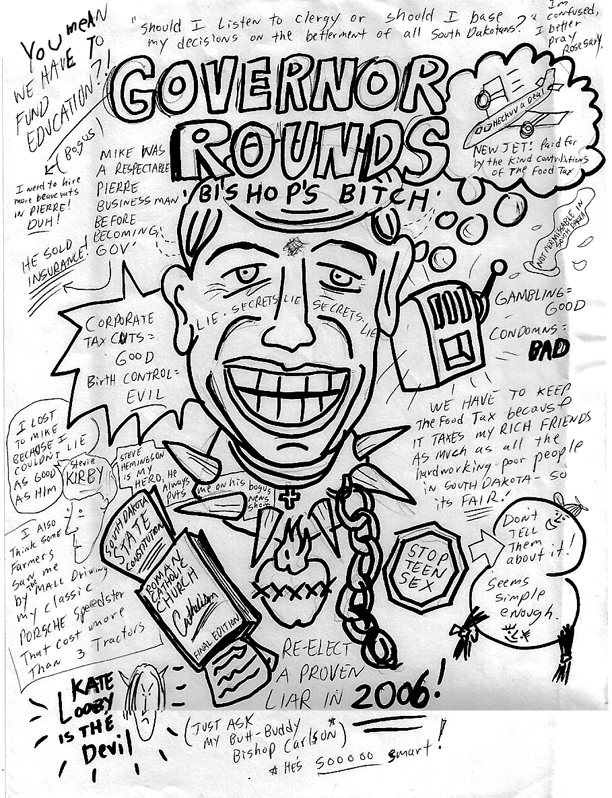 "Should I listen to clergy or should I base
my decisions on the betterment of all South Dakotans?"
I'm
confused,
I better
pray
Rosesary
You mean
WE HAVE TO
FUND
EDUCATION?!
(Bogus)
I need to hire
more beaucrats
IN PIERRE!
DUH!
GOVERNOR
ROUNDS
'BISHOP'S BITCH'
HECKUVA DEAL
NEW JET! Paid for
by the kind contributions
of The Food Tax
MIKE WAS
A RESPECTABLE
PIERRE
BUSINESS MAN
BEFORE
BECOMING
GOV'
HE SOLD
INSURANCE!
NOT AVAILABLE IN
SOUTH DAKOTA
GAMBLING=
GOOD
CONDOMNS=
BAD
LIE. SECRETS LIE SECRETS. LIE
CORPORATE
TAX CUTS=
GOOD
Birth CONTROL=
EVIL
WE HAVE TO KEEP
The Food Tax because
IT TAXES my RICH FRIENDS
AS Much as all the
hardworking poor people
in SOUTH DAKOTA- SO
its FAIR!
I LOST
TO MIKE
BECAUSE I
COULDN'T LIE
AS GOOD
AS HIM
Steve
KIRBY
STEVE
HEMINGSON
IS MY
HERO, HE
Always
PUTS me on his bogus
news
show
I ALSO
Think some
Farmers
saw me
by the MALL Driving
my classic
PORSCHE Speedster
That cost more
Than 3 Tractors
SOUTH DAKOTA
STATE
CONSTITUTION
ROMAN
CATHOLIC
CHURCH
Catechism
FINAL EDITION
STOP
TEEN
SEX
Don't
TELL
Them
about it!
Seems
simple
enough.
RE-ELECT
A PROVEN
LIAR IN 2006!
(JUST ASK
my Butt-Buddy
Bishop Carlson*)
* He's SOOOOO smart!
KATE
LOOBY
IS THE
Devil